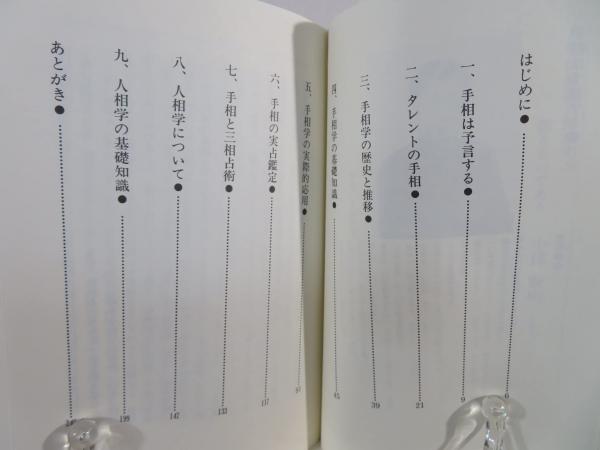 はじめに●……………6
一、手相は予言する●……………9
二、タレントの手相●……………21
三、手相学の歴史と推移●……………39
四、手相学の基礎知識●……………45
五、手相学の実際的応用●……………
六、手相の実占鑑定●……………117
七、手相と三相占術●……………133
八、人相学について●……………147
九、人相学の基礎知識●……………199
あとがき●……………